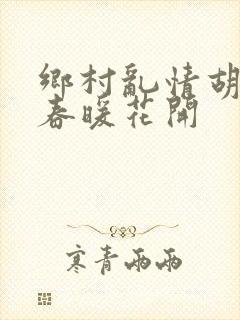 鄉村亂情胡
春暖花開
寒青兩兩